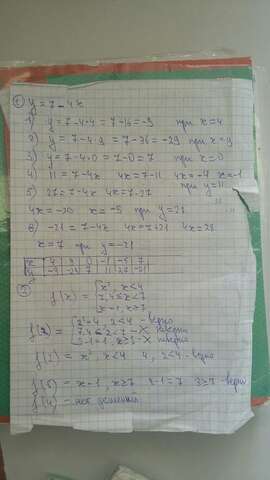 ① y = 7 - 4x
1) y = 7 - 4·4 = 7 - 16 = -9 при x = 4
2) y = 7 - 4·9 = 7 - 36 = -29 при x = 9
3) y = 7 - 4·0 = 7 - 0 = 7 при x = 0
4) 11 = 7 - 4x 4x = 7 - 11 4x = -4 x = -1
при y = 11
5) 27 = 7 - 4x 4x = 7 - 27
4x = -20 x = -5 при y = 27
6) -21 = 7 - 4x 4x = 7 + 21 4x = 28
x = 7 при y = -21
x | 4 | 9 | 0 | -1 | -5 | 7
y | -9 | -29 | 7 | 11 | 27 | -21
② f(x) = { x², x < 4
7, 4 ≤ x < 7
x - 1, x ≥ 7
f(2) = { x² = 4, 2 < 4 - верно
7, 4 ≤ 2 < 7 - X неверно
2 - 1 = 1, x ≥ 7 - X неверно
f(2) = x² x < 4 4, 2 < 4 - верно
f(8) = x - 1, x ≥ 7 8 - 1 = 7 8 ≥ 7 - верно
f(4) = нет решения